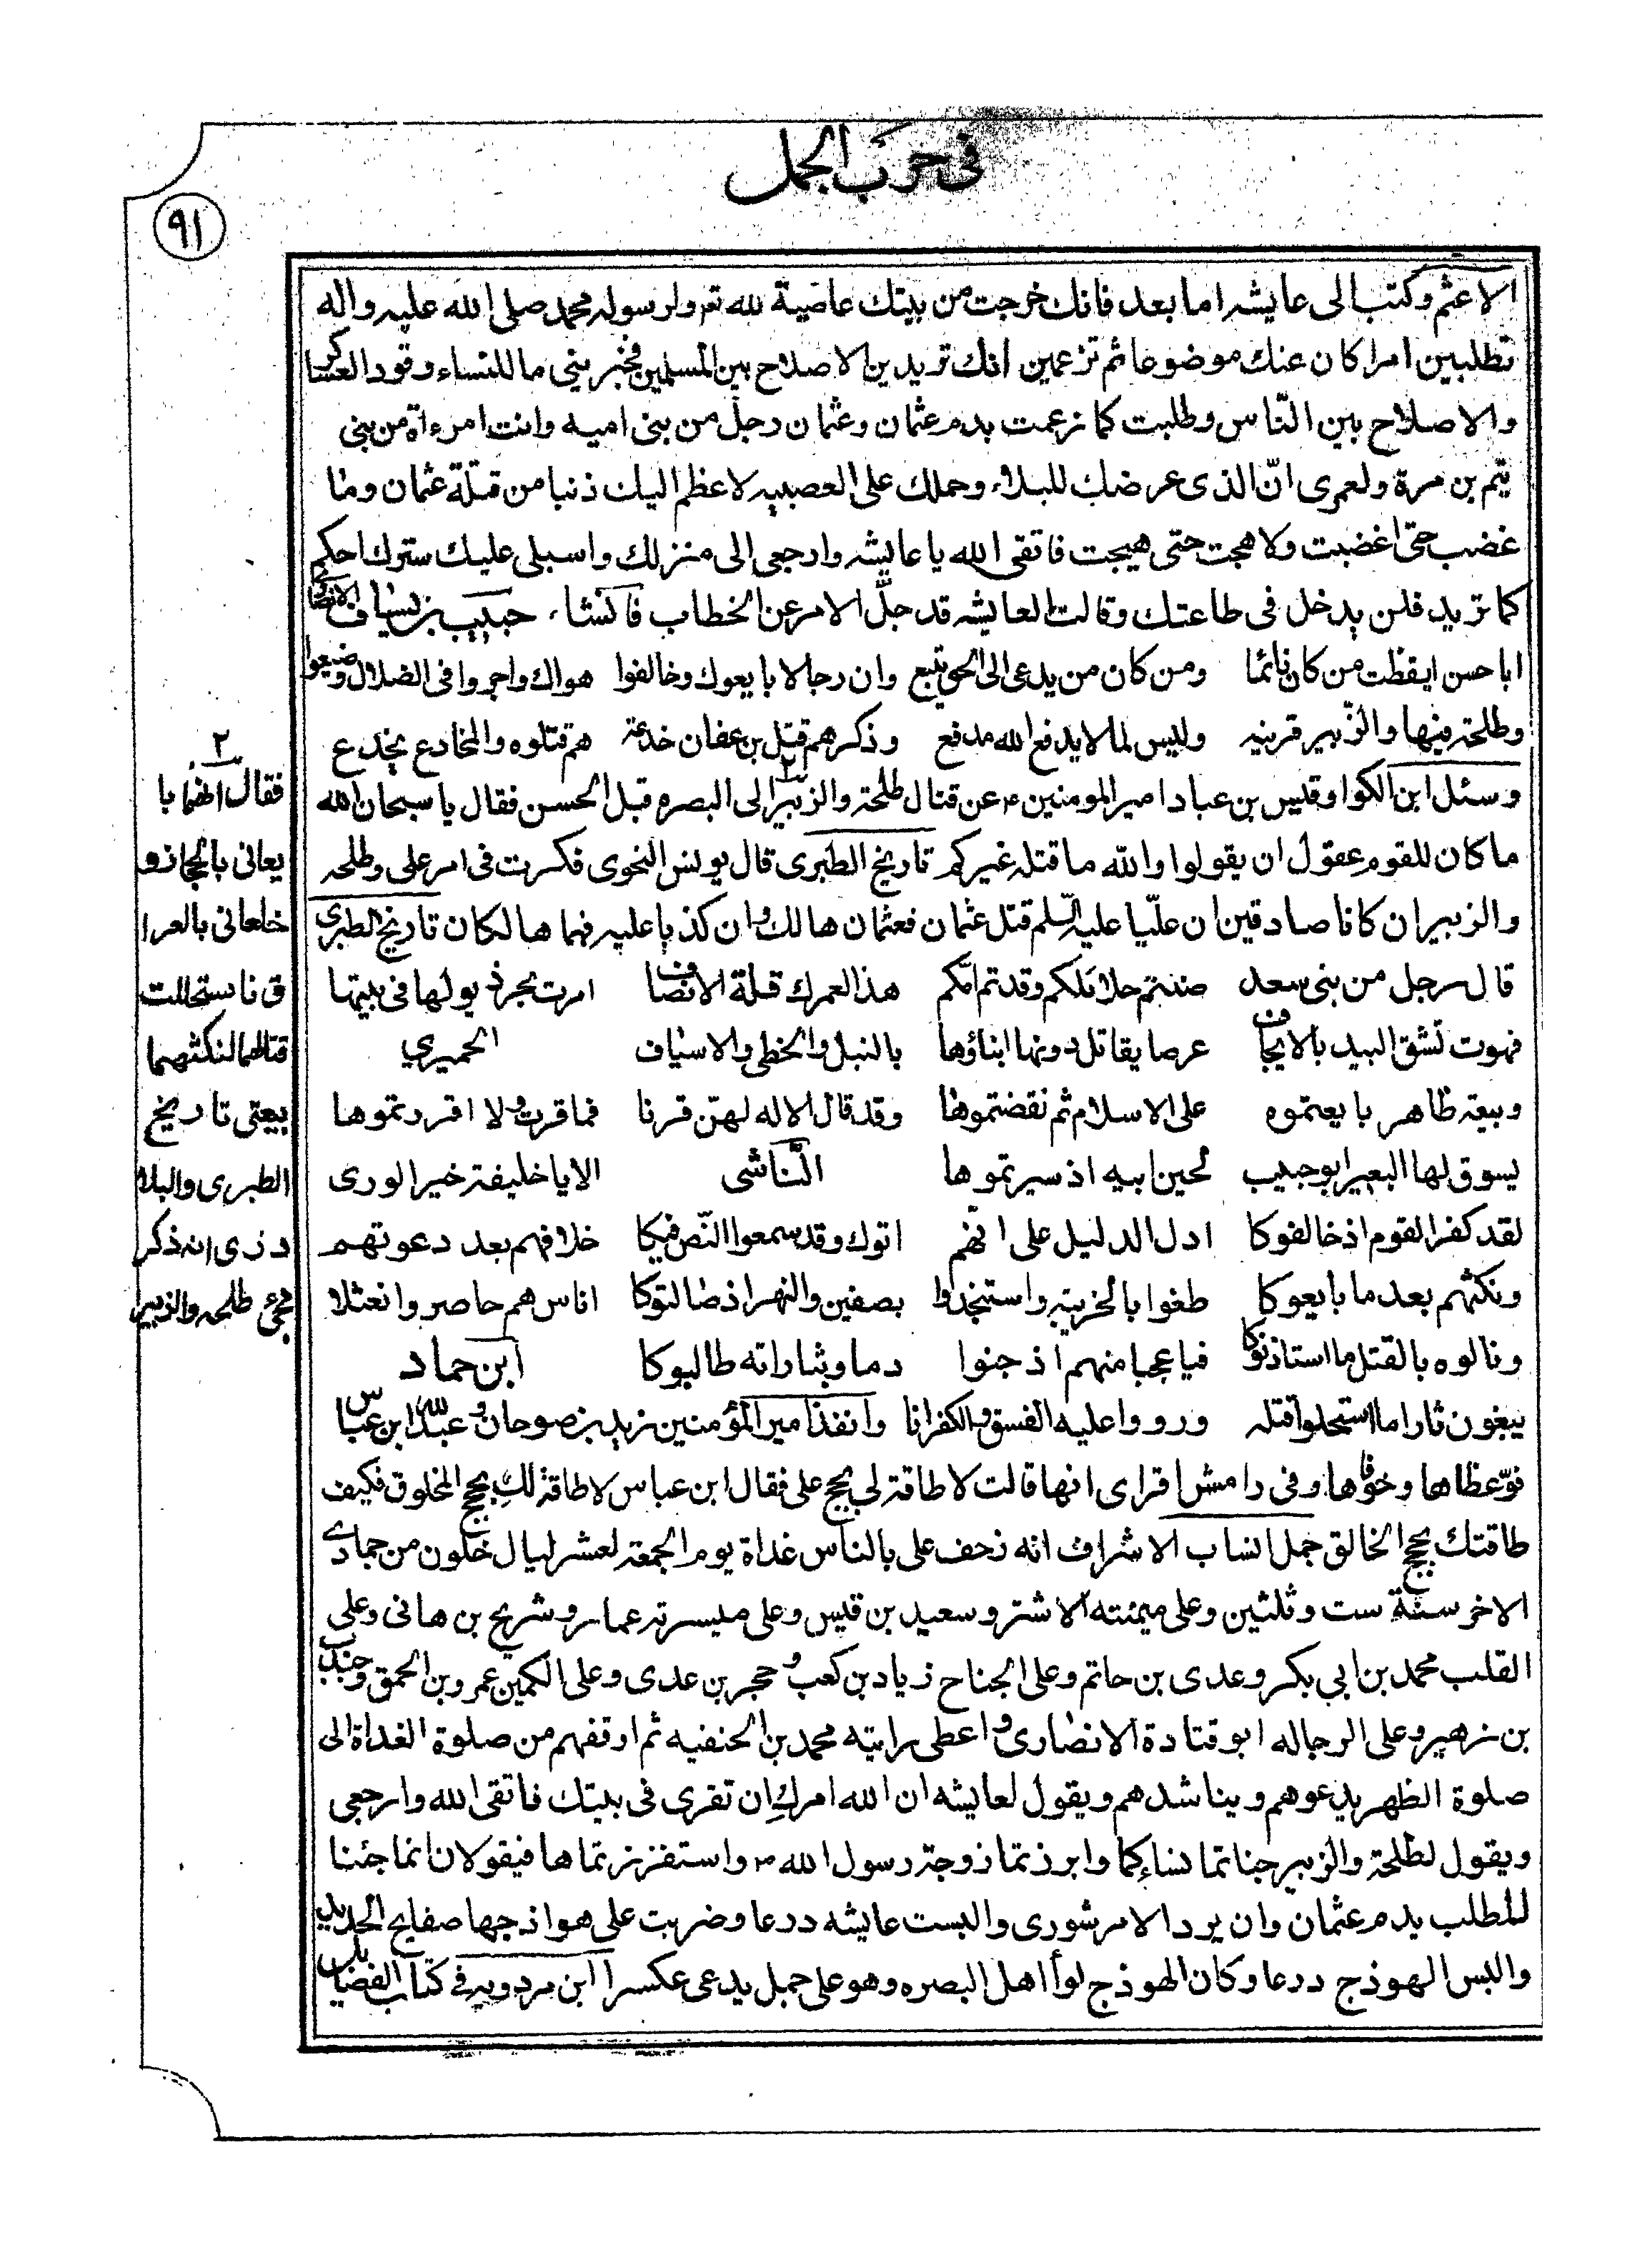 فى حرب الجمل
٩١
الاعثم وكتب الى عايشه اما بعد فانك خرجت من بيتك عاصية لله تع ولرسوله محمد صلى الله عليه واله
تطلبين امرا كان عنك موضوعا ثم تزعمين انك تريدين الاصلاح بين المسلمين فخبرينى ما للنساء وقود العساكر
والاصلاح بين النّاس وطلبت كما زعمت بدم عثمان وعثمان رجل من بنى اميه وانت امرءة من بنى
تيم بن مرة ولعمرى انّ الذى عرضك للبلاء وحملك على العصبيه لاعظم اليك ذنبا من قتلة عثمان وما
غضب حتى اغضبت ولا هجت حتى هيجت فاتقى الله يا عايشه وارجعى الى منزلك واسبلى عليك سترك احكم
كما تريد فلن يدخل فى طاعتك وقالت العايشه قد جلّ الامر عن الخطاب فانشاء حبيب بن يساف الانصارى
ابا حسن ايقظت من كان نائما ومن كان من يدعى الى الحق يتبع وان رجالا بايعوك وخالفوا هواك واجروا فى الضلال وضيعوا
وطلحة فيها والزّبير قرينه وليس لما لا يدفع الله مدفع وذكرهم قتل بن عفان خدعة هم قتلوه والمخادع يخدع
وسئل ابن الكوا وقيس بن عباد امير المومنين ع عن قتال طلحة والزبير ٢ الى البصره قبل الحسن فقال يا سبحان الله
ما كان للقوم عقول ان يقولوا والله ما قتله غيركم تاريخ الطبرى قال يونس النحوى فكرت فى امر على وطلحه
والزبير ان كانا صادقين ان عليّا عليه السّلم قتل عثمان فعثمان هالك وان كذبا عليه فهما هالكان تاريخ الطبرى
قال رجل من بنى سعد صنتم حلائلكم وقدتم امّكم هذا لعمرك قلة الانصاف امرت بجر ذيولها فى بيتها
فهوت تشق البيد بالايجاف عرضا يقاتل دونها ابناؤها بالنبل والخطى والاسياف الحميري
وبيعة ظاهر بايعتموه على الاسلام ثم نقضتموها وقد قال الاله لهنّ قرنا فما قرت ولا اقررتموها
يسوق لها البعير ابو حبيب لحين ابيه اذ سيرتموها النّاشى الا يا خليفة خير الورى
لقد كفر القوم اذ خالفوكا ادل الدليل على انّهم اتوك وقد سمعوا النّص فيكا خلافهم بعد دعوتهم
ونكثهم بعد ما بايعوكا طغوا بالخريبة واستنجدوا بصفين والنهر اذ صالتوكا اناس هم حاصروا نعثلا
ونالوه بالقتل ما استاذنوكا فيا عجبا منهم اذ جنوا دما وبثاراته طالبوكا ابن حماد
يبغون ثارا ما استحلوا قتله ورووا عليه الفسق والكفرانا وانفذ امير المؤمنين زيد بن صوحان وعبد الله ابن عباس
فوّعظاها وخوفاها وفى رامش اقراى انها قالت لا طاقة لى بحجج على فقال ابن عباس لا طاقة لك بحجج المخلوق فكيف
طاقتك بحجج الخالق جمل انساب الاشراف انه زحف على بالناس غداة يوم الجمعة لعشر ليال خلون من جمادى
الاخر سنة ست وثلثين وعلى ميمنته الاشتر وسعيد بن قيس وعلى ميسرته عمار وشريح بن هانى وعلى
القلب محمد بن ابي بكر وعدى بن حاتم وعلى الجناح زياد بن كعب وحجر بن عدى وعلى الكمين عمرو بن الحمق وجندب
بن زهير وعلى الرجاله ابو قتادة الانصارى واعطى رايته محمد بن الحنفيه ثم اوقفهم من صلوة الغداة الى
صلوة الظهر يدعوهم ويناشدهم ويقول لعايشه ان الله امرك ان تقرى فى بيتك فاتقى الله وارجعى
ويقول لطلحة والزبير خباتما نساءكما وابرزتما زوجة رسول الله ص واستفززتماها فيقولان انما جئنا
للطلب بدم عثمان وان يرد الامر شورى والبست عايشه درعا وضربت على هواذجها صفايح الحديد
والبس الهوذج درعا وكان الهوذج لوأ اهل البصره وهو على جمل يدعى عكسرا ابن مردويه فى كتاب الفضايل
٢
فقال انهما با
يعانى بالحجاز و
خلعانى بالعرا
ق فاستحللت
قتالهما لنكثهما
بيعتى تاريخ
الطبرى والبلا
ذرى انه ذكر
مجئ طلحه والزبير